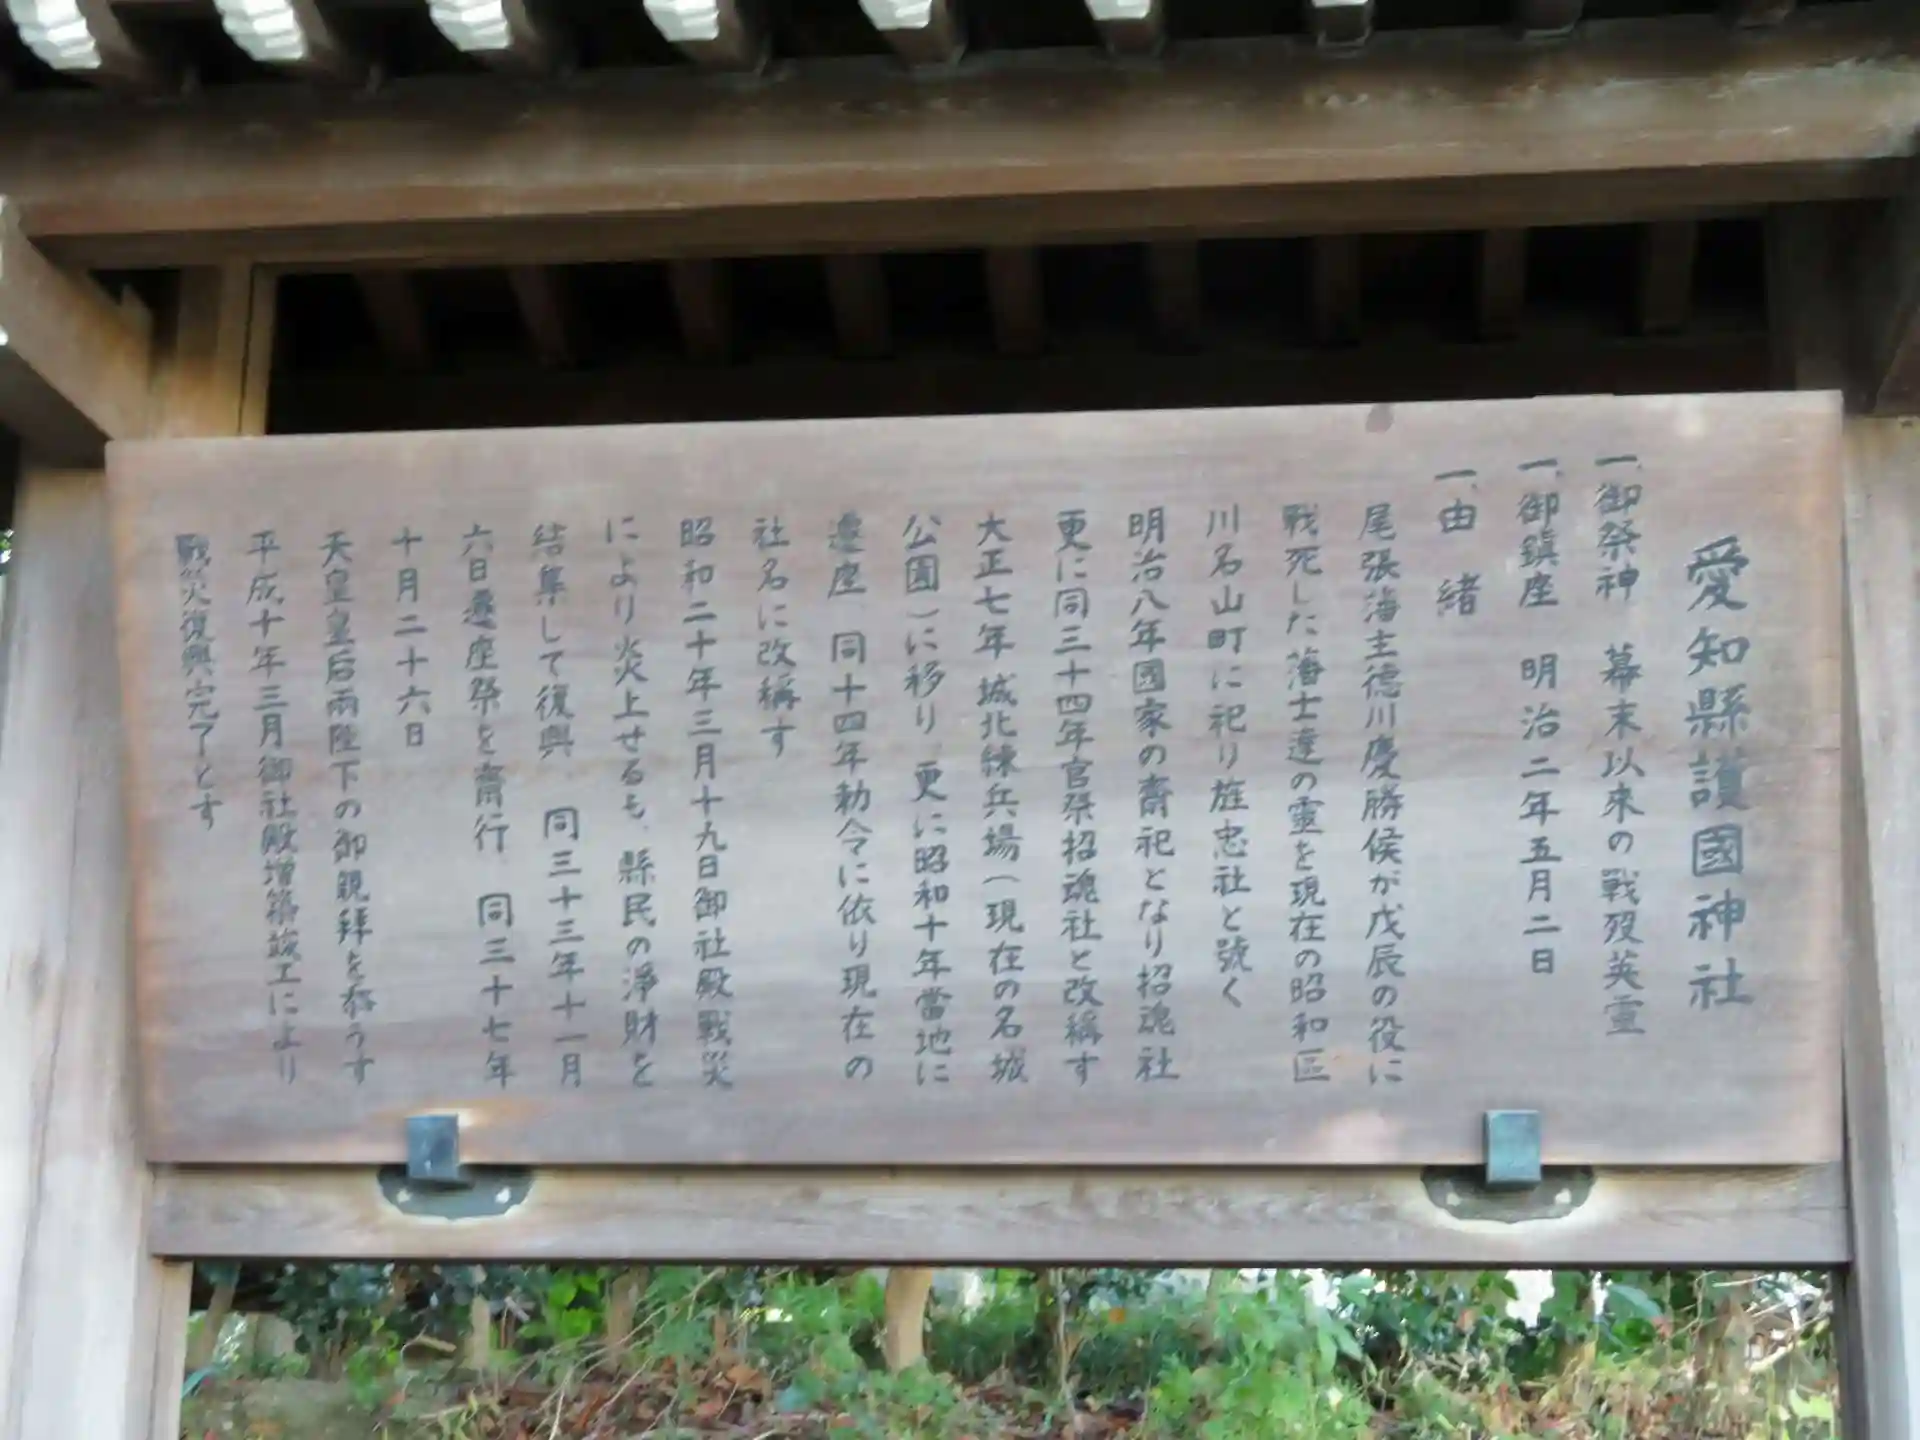 愛知縣護國神社
一、御祭神　幕末以来の戦歿英霊
一、御鎮座　明治二年五月二日
一、由　緒
尾張藩主徳川慶勝侯が戊辰の役に
戦死した藩士達の靈を現在の昭和区
川名山町に祀り旌忠社と號く
明治八年國家の齋祀となり招魂社
更に同三十四年官祭招魂社と改稱す
大正七年城北練兵場(現在の名城
公園)に移り、更に昭和十年當地に
遷座　同十四年勅令に依り現在の
社名に改稱す
昭和二十年三月十九日御社殿戰災
により炎上せるも、縣民の淨財を
結集して復興　同三十三年十一月
六日遷座祭を齋行　同三十七年
十月二十六日
天皇皇后両陛下の御親拜を忝うす
平成十年三月御社殿増築竣工により
戰災復興完了とす